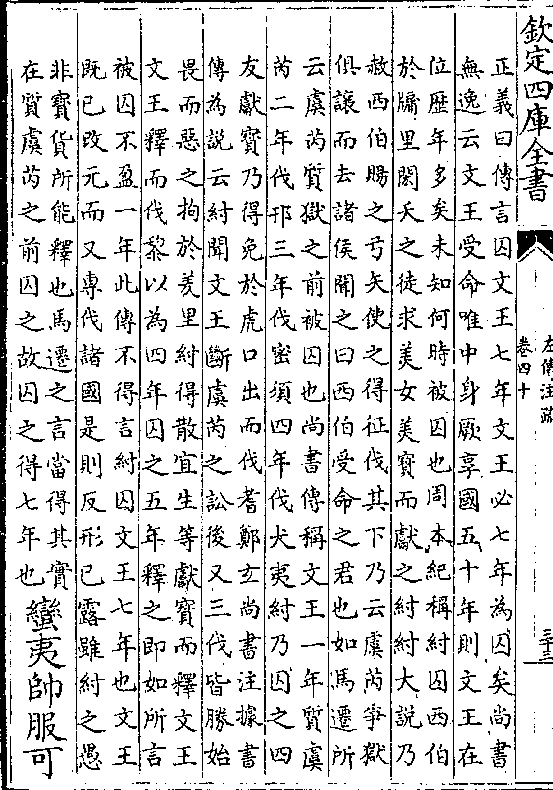 欽定四庫全書
左傳注疏
卷四十
三十三
正義曰傳言囚文王七年文王必七年為囚矣尚書
無逸云文王受命唯中身厥享國五十年則文王在
位歷年多矣未知何時被囚也周本紀稱紂囚西伯
於牖里閎夭之徒求美女美寶而獻之紂紂大説乃
赦西伯賜之弓矢使之得征伐其下乃云虞芮爭獄
俱讓而去諸侯聞之曰西伯受命之君也如馬遷所
云虞芮質獄之前被囚也尚書傳稱文王一年質虞
芮二年伐邘三年伐密須四年伐犬夷紂乃囚之四
友獻寶乃得免於虎口出而伐耆鄭𤣥尚書注據書
傳為説云紂聞文王斷虞芮之訟後又三伐皆勝始
畏而惡之拘於羑里紂得散宜生等獻寶而釋文王
文王釋而伐黎以為四年囚之五年釋之即如所言
被囚不盈一年此傳不得言紂囚文王七年也文王
既已改元而又專伐諸國是則反形已露雖紂之愚
非寶貨所能釋也馬遷之言當得其實
在質虞芮之前囚之故囚之得七年也蠻夷帥服可